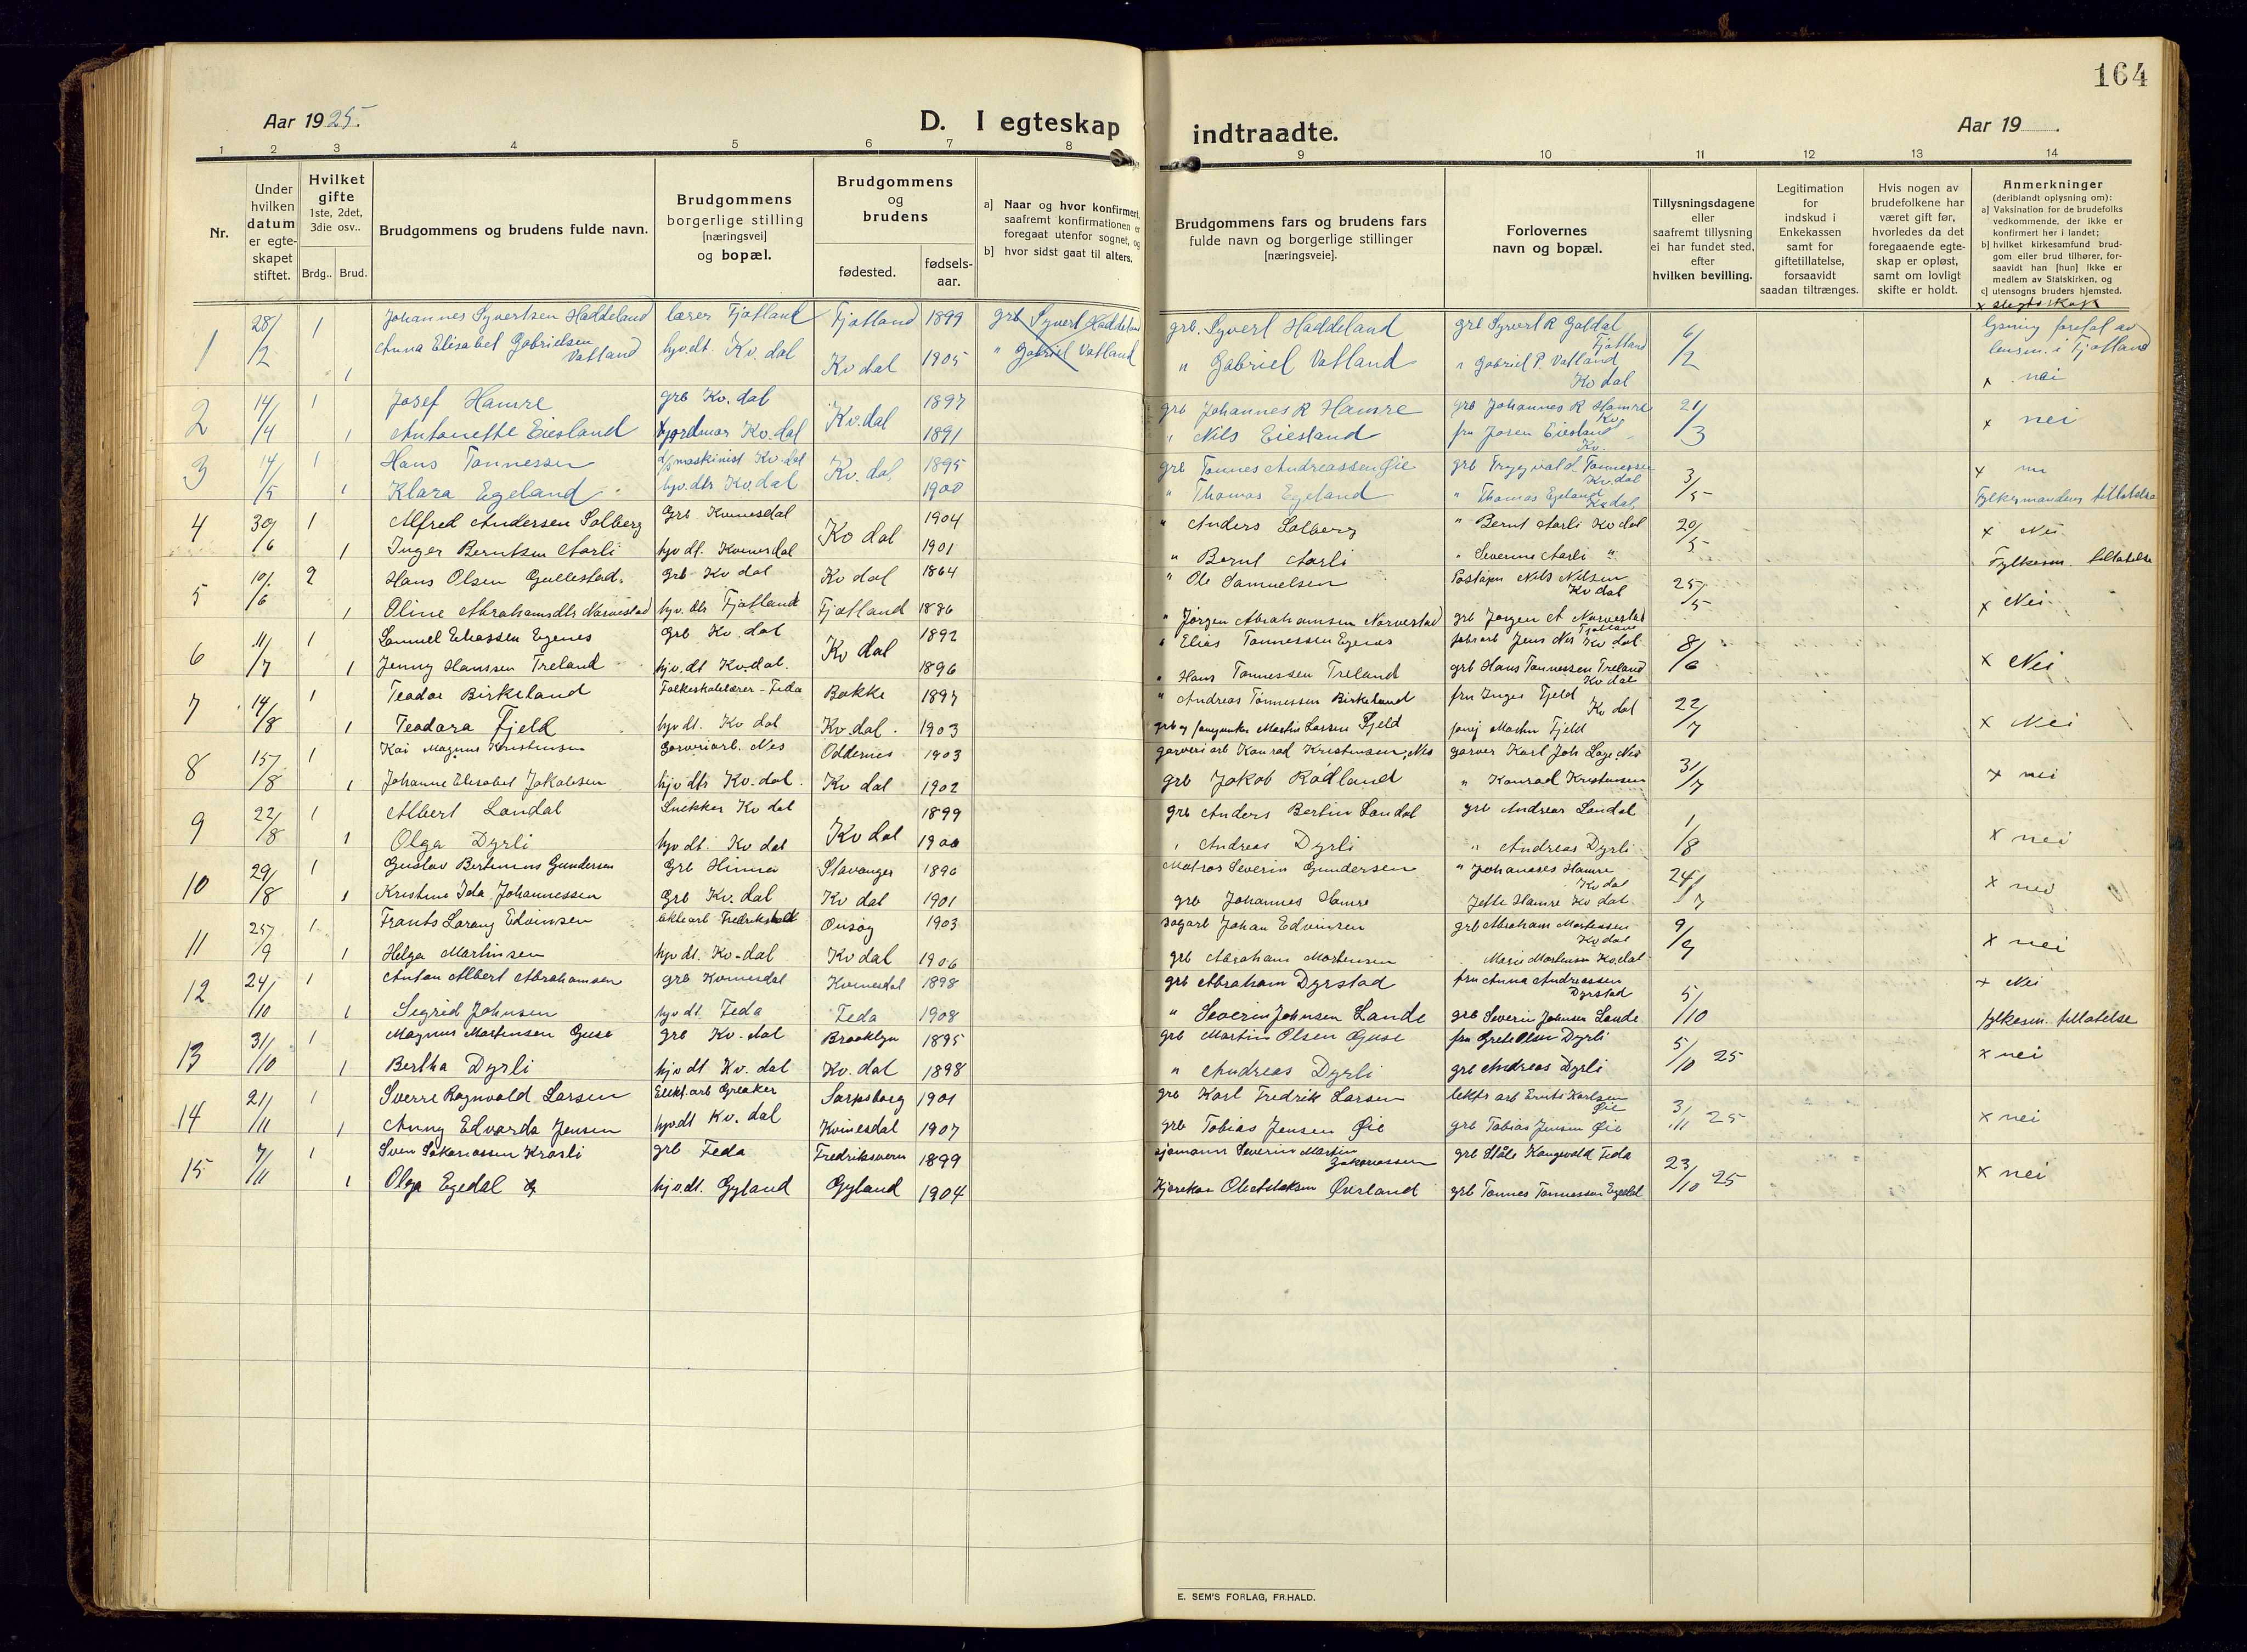 164
Aar 1925.
D. I egteskap indtraadte.
Aar 19
1 2 3 4 5 6 7 8 9 10 11 12 13 14
Nr.
Under hvilken datum er egteskapet stiftet.
Hvilket gifte
1ste, 2det, 3die osv..
Brdg.. Brud.
Brudgommens og brudens fulde navn.
Brudgommens borgerlige stilling [næringsvei] og bopæl.
Brudgommens og brudens
fødested.
fødselsaar.
a) Naar og hvor konfirmert, saafremt konfirmationen er foregaat utenfor sognet, og
b) hvor sidst gaat til alters.
Brudgommens fars og brudens fars fulde navn og borgerlige stillinger [næringsveie].
Forlovernes navn og bopæl.
Tillysningsdagene eller saafremt tillysning ei har fundet sted, efter hvilken bevilling.
Legitimation for indskud i Enkekassen samt for giftetillatelse, forsaavidt saadan tiltrænges.
Hvis nogen av brudefolkene har været gift før, hvorledes da det foregaaende egteskap er opløst, samt om lovligt skifte er holdt.
Anmerkninger
(deriblandt oplysning om):
a) Vaksination for de brudefolks vedkommende, der ikke er konfirmert her i landet;
b) hvilket kirkesamfund brudgom eller brud tilhører, forsaavidt han [hun] ikke er medlem av Statskirken, og
c) utensogns bruders hjemsted.
x slegtskap
1 28/2 1 Johannes Syvertsen Haddeland lærer Fjotland Fjotland 1899 grb Syvert Haddeland grb. Syvert Haddeland grb Syvert R Galdal Fjotland 6/2 lysning foretat av lensm. i Fjotland
1 Anna Elisabet Gabrielsen Vatland hjv.dt. Kv.dal Kvdal 1905 " Gabriel Vatland " Gabriel Vatland " Gabriel P. Vatland Kvdal x nei
2 14/4 1 Josef Hamre grb Kv.dal Kv.dal 1897 grb Johannes R Hamre grb Johannes R Hamre Kv. 21/3 x nei
1 Antonette Eiesland Kv.dal 1891 " Nils Eiesland fru Josen Eiesland Kv.
3 14/5 1 Hans Tønnessen maskinist Kv.dal Kv.dal 1895 grb Tønnes Andreassen Øie grb Trygvald Tønnessen Kv.dal 3/5 x
1 Klara Egeland hjv.dtr Kv.dal 1900 " Thomas Egeland " Thomas Egeland Kvdal Fylkesmandens tillatelse
4 30/6 1 Alfred Andersen Solberg Grb Kvinesdal Kvdal 1904 " Anders Solberg " Bernt Aarli Kvdal 20/5 x Nei
1 Inger Berntsen Aarli hjv dt. Kvinesdal 1901 " Bernt Aarli " Severine Aarli " Fylkesm. tillatelse
5 10/6 2 Hans Olsen Gullestad. Grb Kv dal Kv dal 1864 " Ole Samuelsen Nils Nilsen Kvdal 25/5
1 Oline Abrahamsdtr Narvestad hjv. dtr Fjotland Fjotland 1886 " Jörgen Abrahamsen Narvestad grb Jørgen A Narvestad Fjotland x Nei
6 11/7 1 Samuel Eliassen Egenes Grb Kv. dal Kv dal 1892 " Elias Tønnessen Egenes Jens Nes Kv. dal 8/6
1 Jenny Hanssen Treland hjv.dt Kv.dal. 1896 " Hans Tønnessen Treland grb Hans Tønnessen Treland Kvdal x Nei
7 14/8 1 Teador Birkeland Folkeskolelærer - Feda Bakke 1897 " Andreas Tönnessen Birkeland fru Inger Fjeld Kv dal 22/7
1 Teodora Fjeld hjv dt. Kv dal Kv.dal. 1903 grb og Martin Larsen Fjeld Martin Fjeld x Nei
8 15/8 1 Kai Magnus Kristensen Garveriarb. Nes Oddernes 1903 garveri arb Konrad Kristensen, Nes garver Karl Joh Nes 31/7
1 Johanne Elisabet Jakobsen hjv dtr Kv.dal. Kv dal 1902 grb Jakob Rødland " Konrad Kristensen x nei
9 22/8 1 Albert Landal Snekker Kv dal Kv dal 1899 grb Anders Bertin Landal grb Andreas Landal 1/8
1 Olga Dyrli hjv dt. Kv dal 1900 " Andreas Dyrli " Andreas Dyrli x nei
10 29/8 1 Gustav Gundersen Grb Hinna Stavanger 1896 Matros Severin Gundersen " Johannes Hamre Kvdal 24/7
1 Kristine Ida Johannessen Grb Kv. dal Kv dal 1901 grb Johannes Hamre Jette Hamre Kv dal x nei
11 25/9 1 Frants Edvinsen Fredrikshald Onsøy 1903 Johan Edvinsen grb Abraham Martensen Kvdal 9/9
1 Helga Martinsen hjv dt. Kv-dal Kvdal 1906 grb Abraham Mortensen Marie Mortensen Kvdal x nei
12 24/10 1 Anton Albert Abrahamsen grb Kvinesdal Kvinesdal 1898 grb Abraham Dyrstad fru Anna Andreassen Dyrstad 5/10 x Nei
1 Sigrid Johnsen hjv dt. Feda Feda 1908 " Severin Johnsen Lande grb Severin Johnsen Lande fylkesm. tillatelse
13 31/10 1 Magnus Mortensen Guse grb Kv. dal Brooklyn 1895 grb Martin Olsen Guse fru Grete Olsen Dyrli 5/10 25
1 Bertha Dyrli hjv dt Kv. dal Kv. dal 1898 " Andreas Dyrli grb Andreas Dyrli x nei
14 21/11 1 Sverre Ragnvald Larsen Elekt.arb Greaker Sarpsborg 1901 grb Karl Fredrik Larsen Karlsen Øie 3/11 25
1 Anny Edvarda Jensen hjvdt Kv. dal Kvinesdal 1907 grb Tobias Jensen Øie grb Tobias Jensen Øie x nei
15 7/11 1 Sven Sakariassen Kråsli grb Feda Fredriksværn 1899 sjømann Severin Martin Zakariassen grb Ståle Kongevold Feda 23/10 25
1 Olga Egedal hjv.dt. Gyland Gyland 1904 Øverland grb Tønnes Tønnessen Egedal x nei
E. SEM'S FORLAG, FR.HALD.